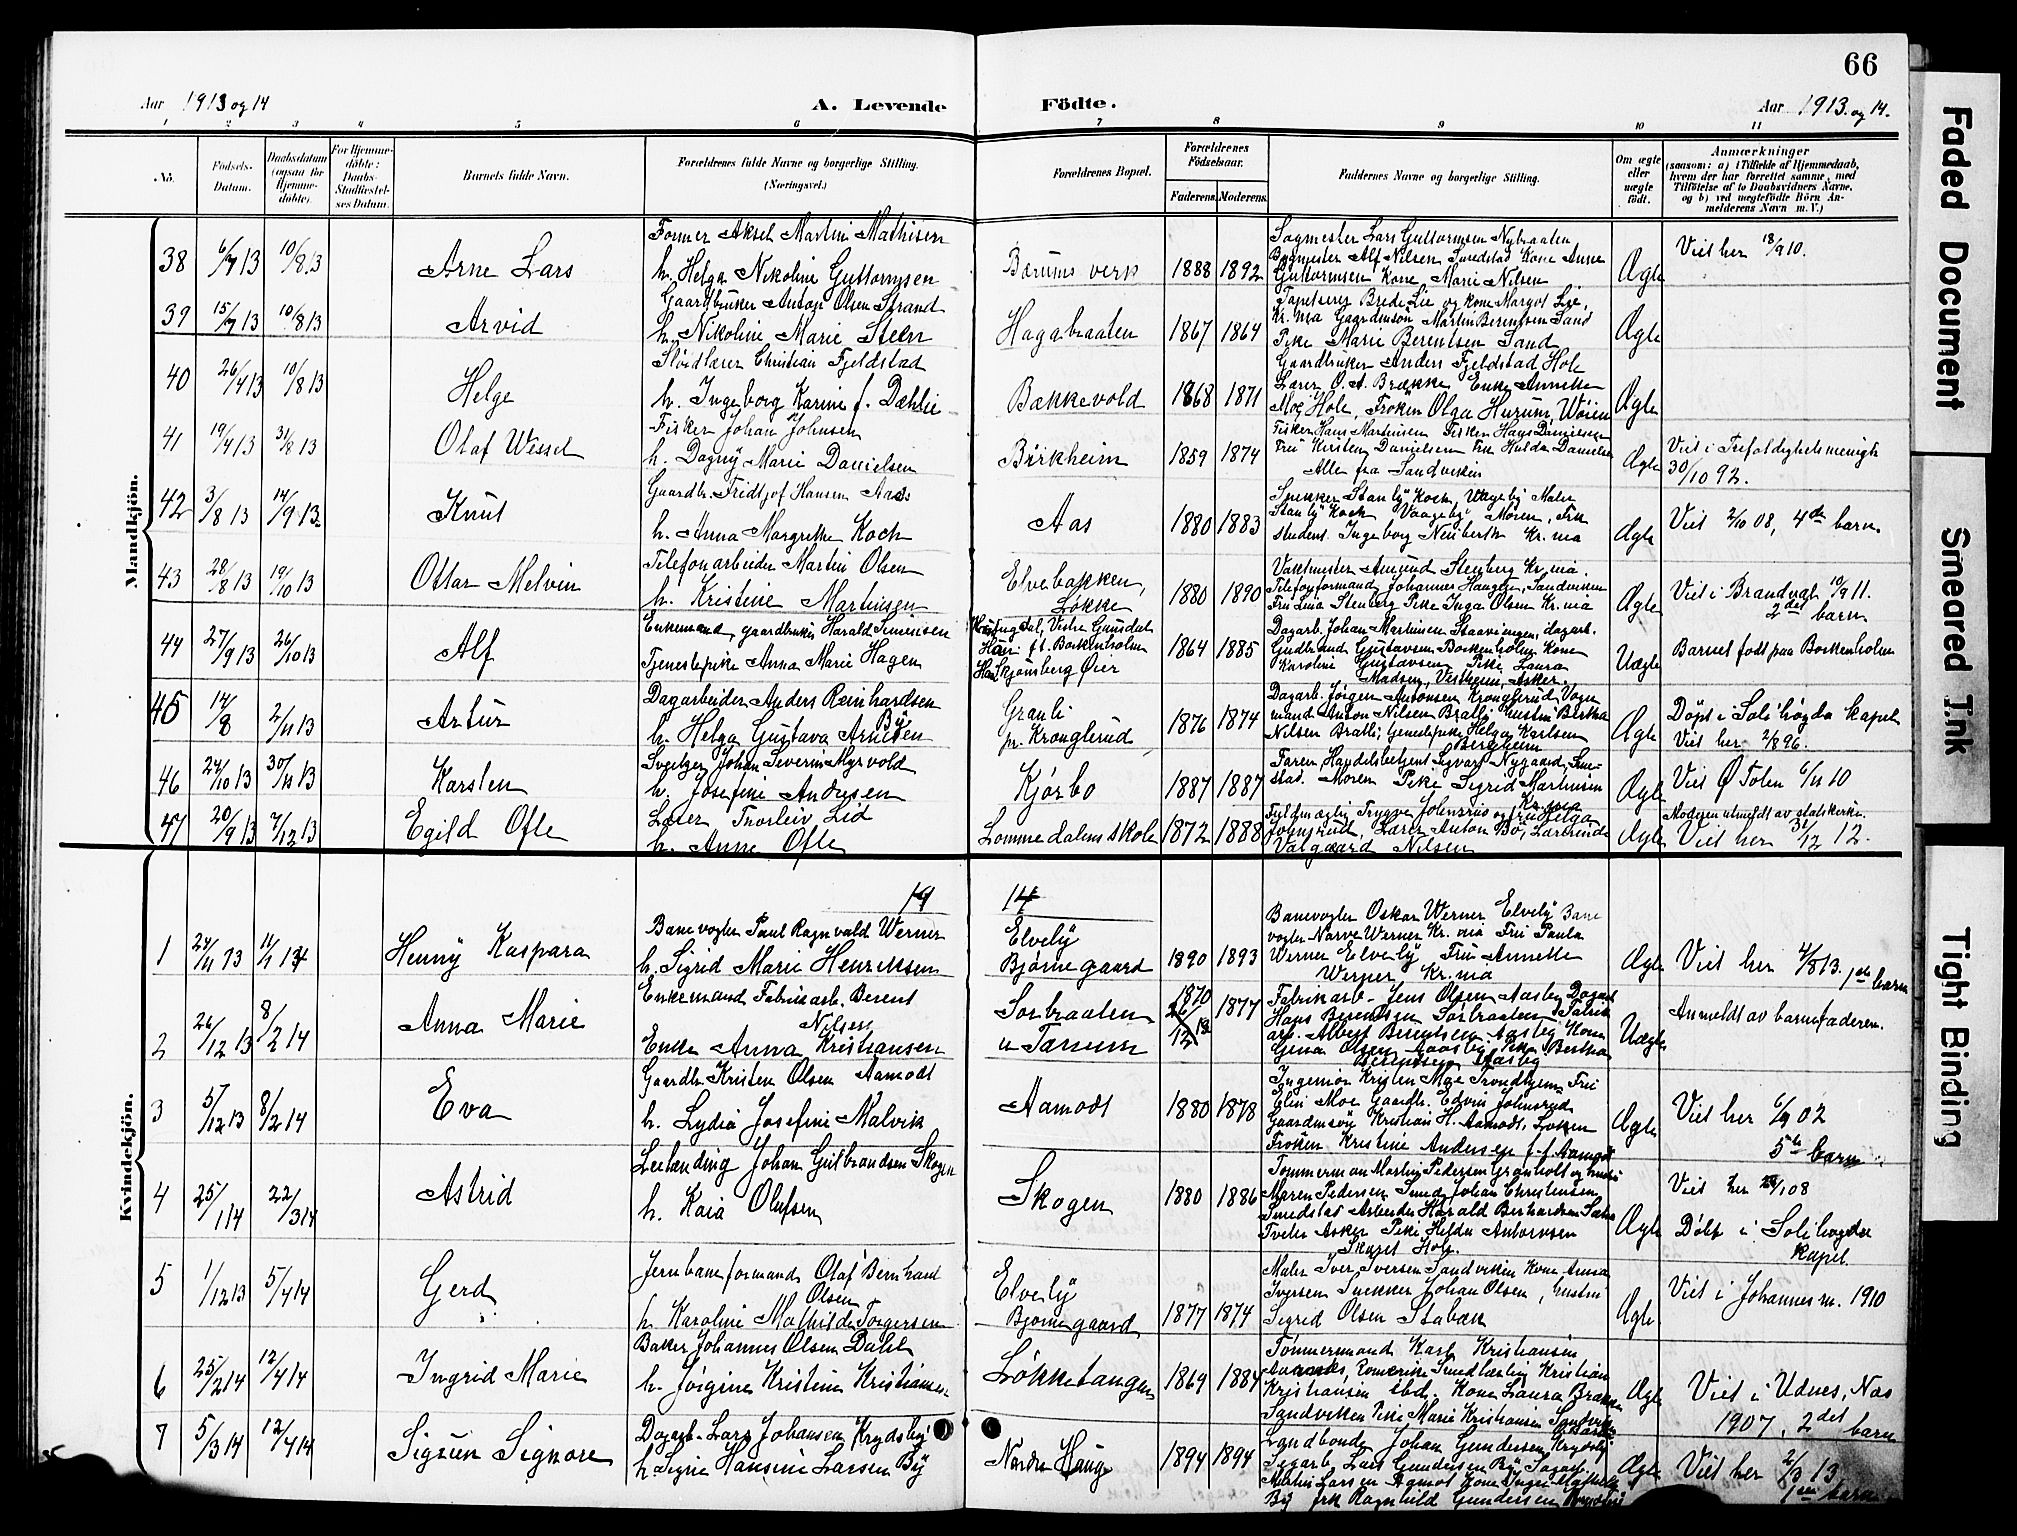 66
Aar 1913 og 14
A. Levende Födte.
Aar 1913. og 14.
1 2 3 4 5 6 7 8 9 10 11
No.
Födsels-Datum.
Daabsdatum (ogsaa for Hjemmedöbte).
For Hjemmedöbte: Daabs-Stadfæstelses Datum.
Barnets fulde Navn.
Forældrenes fulde Navne og borgerlige Stilling. (Næringsvei.)
Forældrenes Bopæl.
Forældrenes Födselsaar.
Faderens. Moderens.
Faddernes Navne og borgerlige Stilling.
Om ægte eller uægte födt.
Anmærkninger
(saasom: a) i Tilfælde af Hjemmedaab, hvem der har forrettet samme, med Tilföielse af to Daabsvidners Navne, og b) ved uægtefödte Börn Anmelderens Navn m. V.)
Mandkjön.
38 6/7 13 10/8.13 Arne Lars
Former Aksel Martin Mathisen
h. Helga Nikoline Guttormsen
Bærums verk 1888 1892
Sagmester Lars Guttormsen Nybraaten
Bogmester Alf Nilsen Sandstad Kone Anne
Guttormsen Kone Marie Nilsen
Ægte
Viet her 18/9 10.
39 15/7 13 10/8 13 Arvid
Gaardbruker Anton Olsen Strand
h. Nikoline Marie Steen
Hagabraaten 1867 1864
Tapetserer Brede Lie og kone Margot Lie,
Kr.ma Gaardmssön Martin Berentsen Sand
Pike Marie Berentsen Sand
Ægte
40 26/4 13 10/8 13 Helge
Sløidlærer Christian Fjeldstad
h. Ingeborg Karine f. Dæhlie
Bækkevold 1868 1871
Gaardbruker Anders Fjeldstad Hole
Lærer O. A. Brække Enke Annette
Moe Hole, Frøken Olga Hurum Wøien
Ægte
41 19/4 13 31/8 13 Olaf Wessel
Fisker Johan Johnsen
h. Dagny Marie Danielsen
Birkheim 1859 1874
Fisker Hans Martinsen Fisker Hans Danielsen
Fru Kirsten Danielsen Frk Hulda Danielsen
Alle fra Sandviken
Ægte
Viet i Trefoldighetsmenigh
30/10 92.
42 3/8 13 14/9 13. Knut
Gaardbr. Fridtjof Hansen Aas
h. Anna Margrethe Koch
Aas 1880 1883
Snekker Stanly Koch, Vaageby Maler
Stanly Koch Vaageby Moren, Frk
student Ingeborg Neuberth Kr.ma
Ægte
Viet 2/10 08, 4de barn
43 28/8 13 19/10 13 Ottar Melvin
Telefonarbeider Martin Olsen
h. Kristine Martinsen
Elvebakken, Løkke 1880 1890
Vaktmester Amund Stenberg Kr.ma.
Telefonformand Johannes Haugen, Sandviken
Fru Lina Stenberg Pike Inga Olsen Kr.ma
Ægte
Viet i Brandval 10/9 11.
2det barn
44 27/9 13 26/10 13 Alf
Enkemand, gaardbruker Harald Simensen
Tjenestepike Anna Marie Hagen
Vestre Gausdal
Skjønsberg Øier 1864 1885
Dagarb. Johan Martinsen Staavingen, dagarb.
Gudbrand Gustavsen Bockenholm Kone
Karoline Gustavsen Pike Laura
Madsen, Vestheim, Asker.
Uægte
Barnet født paa Bockenholm
45 14/8 2/11 13 Artur
Dagarbeider Anders Reinhardsen By
h. Helga Gustava Arnesen
Granli pr. Kronglerud 1876 1874
Dagarb. Jörgen Antonsen Kronglerud Vogn
mand Anton Nilsen Bratli, hustru Bertha
Nilsen Bratli; Gamlepike Helga Karlsen
Bergheim
Ægte
Døpt i Solihøgda kapel
Viet her 2/8 96.
46 24/10 13 30/11 13 Karsten
Sveitzer Johan Severin Myrvold
h. Josefine Andresen
Kjørbo 1887 1887
Faren, Handelsbetjent Sigvart Nygaard, Sme-
stad. Moren Pike Sigrid Martinsen
Kr.ma
Ægte
Viet Ø Toten 6/11 10
47 20/9 13 7/12 13 Egild Ofte
Lærer Trorleiv Lid
h. Anne Ofte
Lommedalens skole 1872 1888
Fuldmægtig Trygve Johnsrud og fru Helga
Johnsrud, Lærer Anton Bø, Lærerinde
Valgaard Nilsen
Ægte
Moderen utmeldt av statskirken.
Viet her 31/12 12.
1914
Kvindekjön.
1 24/11 13 11/1 14 Henny Kaspara
Banevogter Paul Ragnvald Werner
h. Sigrid Marie Henriksen
Elvely Bjørnegaard 1890 1893
Banevogter Oskar Werner Elvely Bane
vogter Narve Werner Kr.ma Fru Paula
Werner Elvely Fru Annette
Werner Kr.ma
Ægte
Viet her 4/8 13. 1ste barn
2 26/12 13 8/2 14 Anna Marie
Enkemand Fabrikarb. Berent
Nilsen
Enke Anna Kristiansen
Sorbraaten u Tanum 1870 26/12 13 1877
Fabrikarb. Jens Olsen Aasby Dagarb
Hans Berentsen Sorbraaten Fabrik
arb. Albert Berentsen Aasby Kone
Gina Olsen Aasby Pike Bertha
Berentsen Aasby
Uægte
Anmeldt av barnefaderen.
3 5/12 13 8/2 14 Eva
Gaardbr Kristen Olsen Aamodt
h. Lydia Josefine Malvik
Aamodt 1880 1878
Ingeniør Kristen Moe Trondhjem Fru
Elin Moe Gaardbr. Edvin Johnsrud
Gaardmssön Kristian H. Aamodt, Løken
Frøken Kristine Andersen f.f. Aamodt
Ægte
Viet her 6/9 02
5te barn
4 25/1 14 22/3 14 Astrid
Leilænding Johan Gulbrandsen Skogen
h. Kaia Olufsen
Skogen 1880 1886
Tømmerman Martin Pedersen Granholt og hustru
Maren Pedersen Smed Johan Christensen
Smedstad Arbeider Harald Berhardsen Sæter
Tveter Asker Pike Helda Antonsen
Skaret Hole.
Ægte
Viet her /1 08
Döbt i Solihogda
Kapel.
5 1/12 13 5/4 14 Gerd
Jernbaneformand Olaf Bernhard
Olsen
h Karoline Mathilde Torgersen
Elvely Bjørnegaard 1877 1874
Maler Iver Iversen Sandviken Kone Anna
Iversen Snekker Johan Olsen, hustru
Sigrid Olsen Stabæk
Ægte
Viet i Johannes m. 1910
6 25/2 14 12/4 14 Ingrid Marie
Baker Johannes Olsen Dahl
h. Jörgine Kristine Kristiansen
Løkketangen 1869 1884
Tømmermand Karl Kristiansen
Aarnes, Romerike Smedlærling Kristian
Kristiansen sted. Kone Laura Braken
Sandviken Pike Marie Kristiansen Sandviken
Ægte
Viet i Udnes, Nes
1907, 2det barn
7 5/3 14 12/4 14 Sigrun Signore
Dagarb. Lars Johansen Krydsby
h. Signe Hansine Larsen By
Nordre Hauge 1894 1894
Landbonde Johan Gundersen Krydsby
Sagarb. Lars Gundersen By Sagarb
Martin Larsen Aamot Kone Inga Mathilde
By frk Ragnhild Gundersen Krydsby
Ægte
Viet her 2/3 13
1ste barn
Faded Document
Smeared Ink
Tight Binding